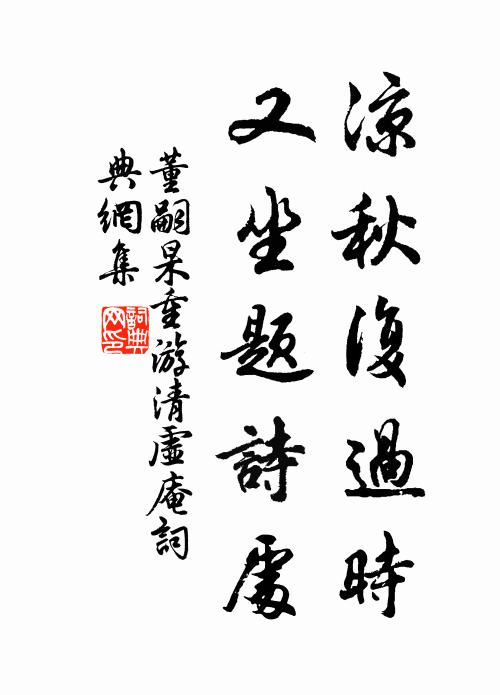 凉秋復過時
又坐題詩處
董嗣杲重游清虛庵詞
典網集
詞典
网印